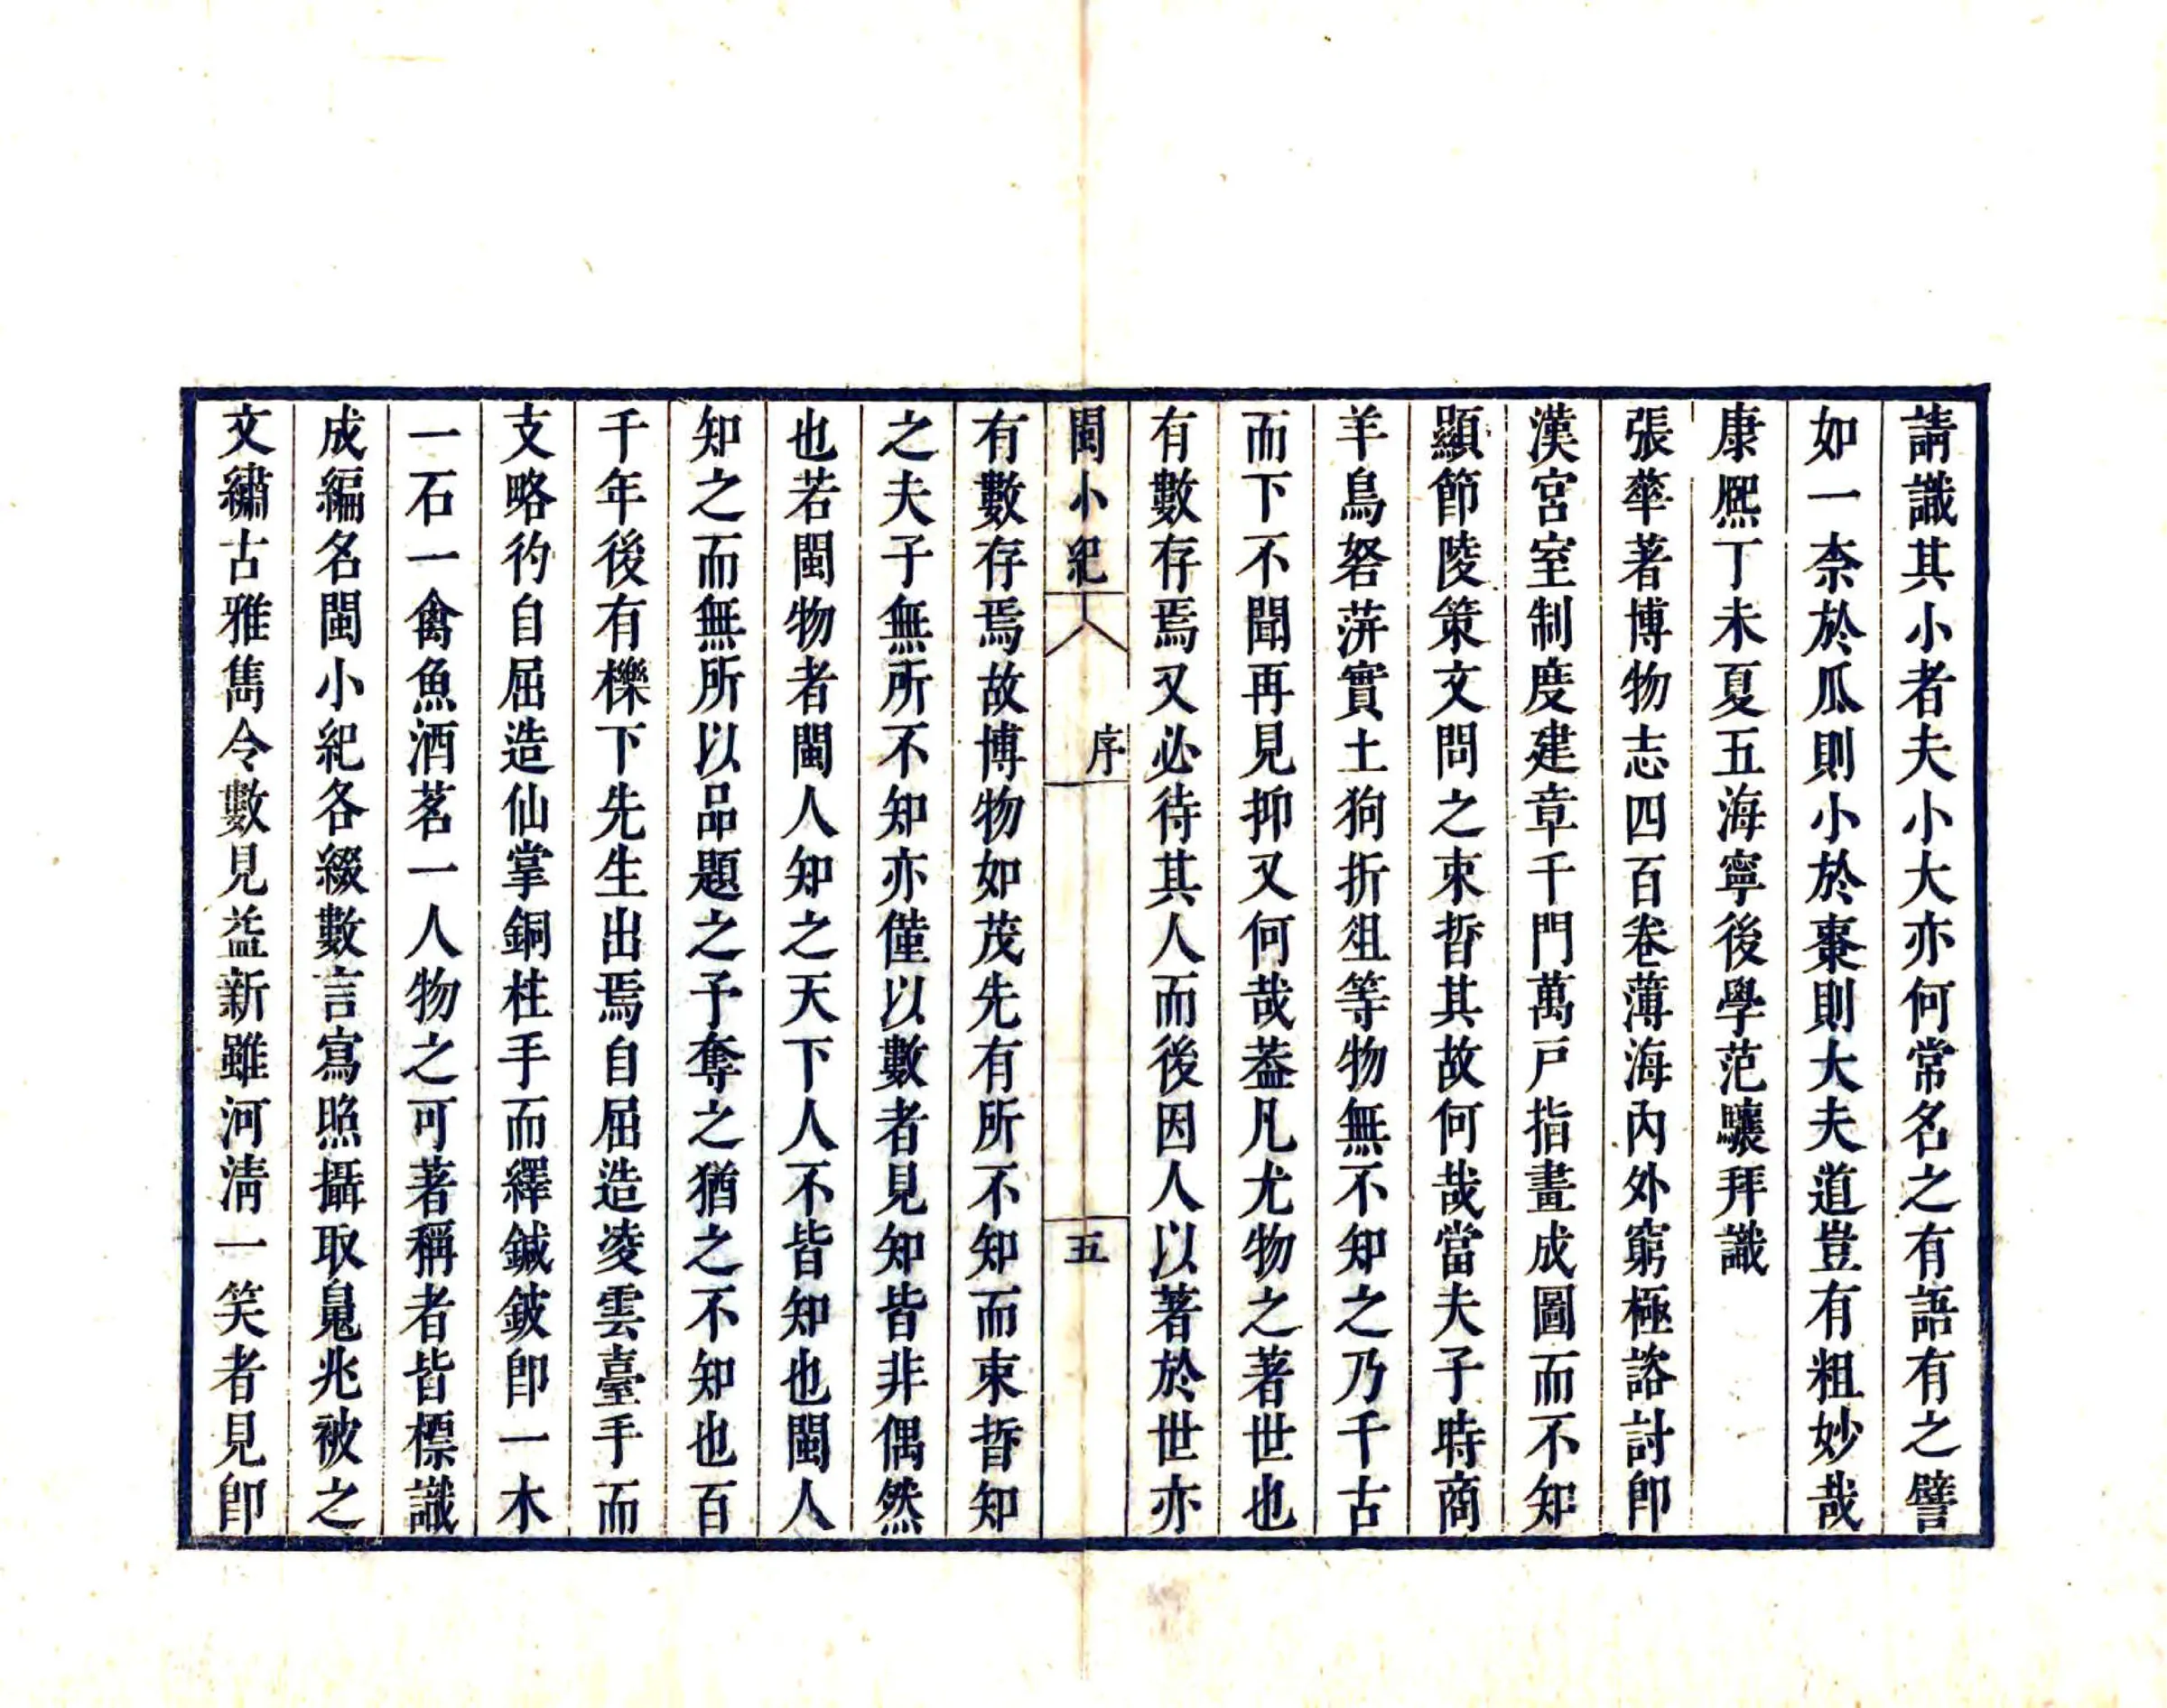 請識其小者夫小大亦何常名之有語有之譬
如一柰於瓜則小於棗則大夫道豈有粗妙哉
康熙丁未夏五海寧後學范驤拜識
張華著博物志四百卷薄海內外窮極諮討卽
漢宮室制度建章千門萬戸指畫成圖而不知
顯節陵策文問之束晳其故何哉當夫子時商
羊鳥砮蓱實土狗折俎等物無不知之乃千古
而下不聞再見抑又何哉葢凡尤物之著世也
有數存焉又必待其人而後因人以著於世亦
閩小紀 序 五
有數存焉故博物如茂先有所不知而束晳知
之夫子無所不知亦僅以數者見知皆非偶然
也若閩物者閩人知之天下人不皆知也閩人
知之而無所以品題之予奪之猶之不知也百
千年後有櫟下先生出焉自屈造凌雲臺手而
支略彴自屈造仙掌銅柱手而繹鍼鈹卽一木
一石一禽魚酒茗一人物之可著稱者皆標識
成編名閩小紀各綴數言寫照攝取㝱兆被之
文繡古雅雋令數見益新雖河淸一笑者見卽